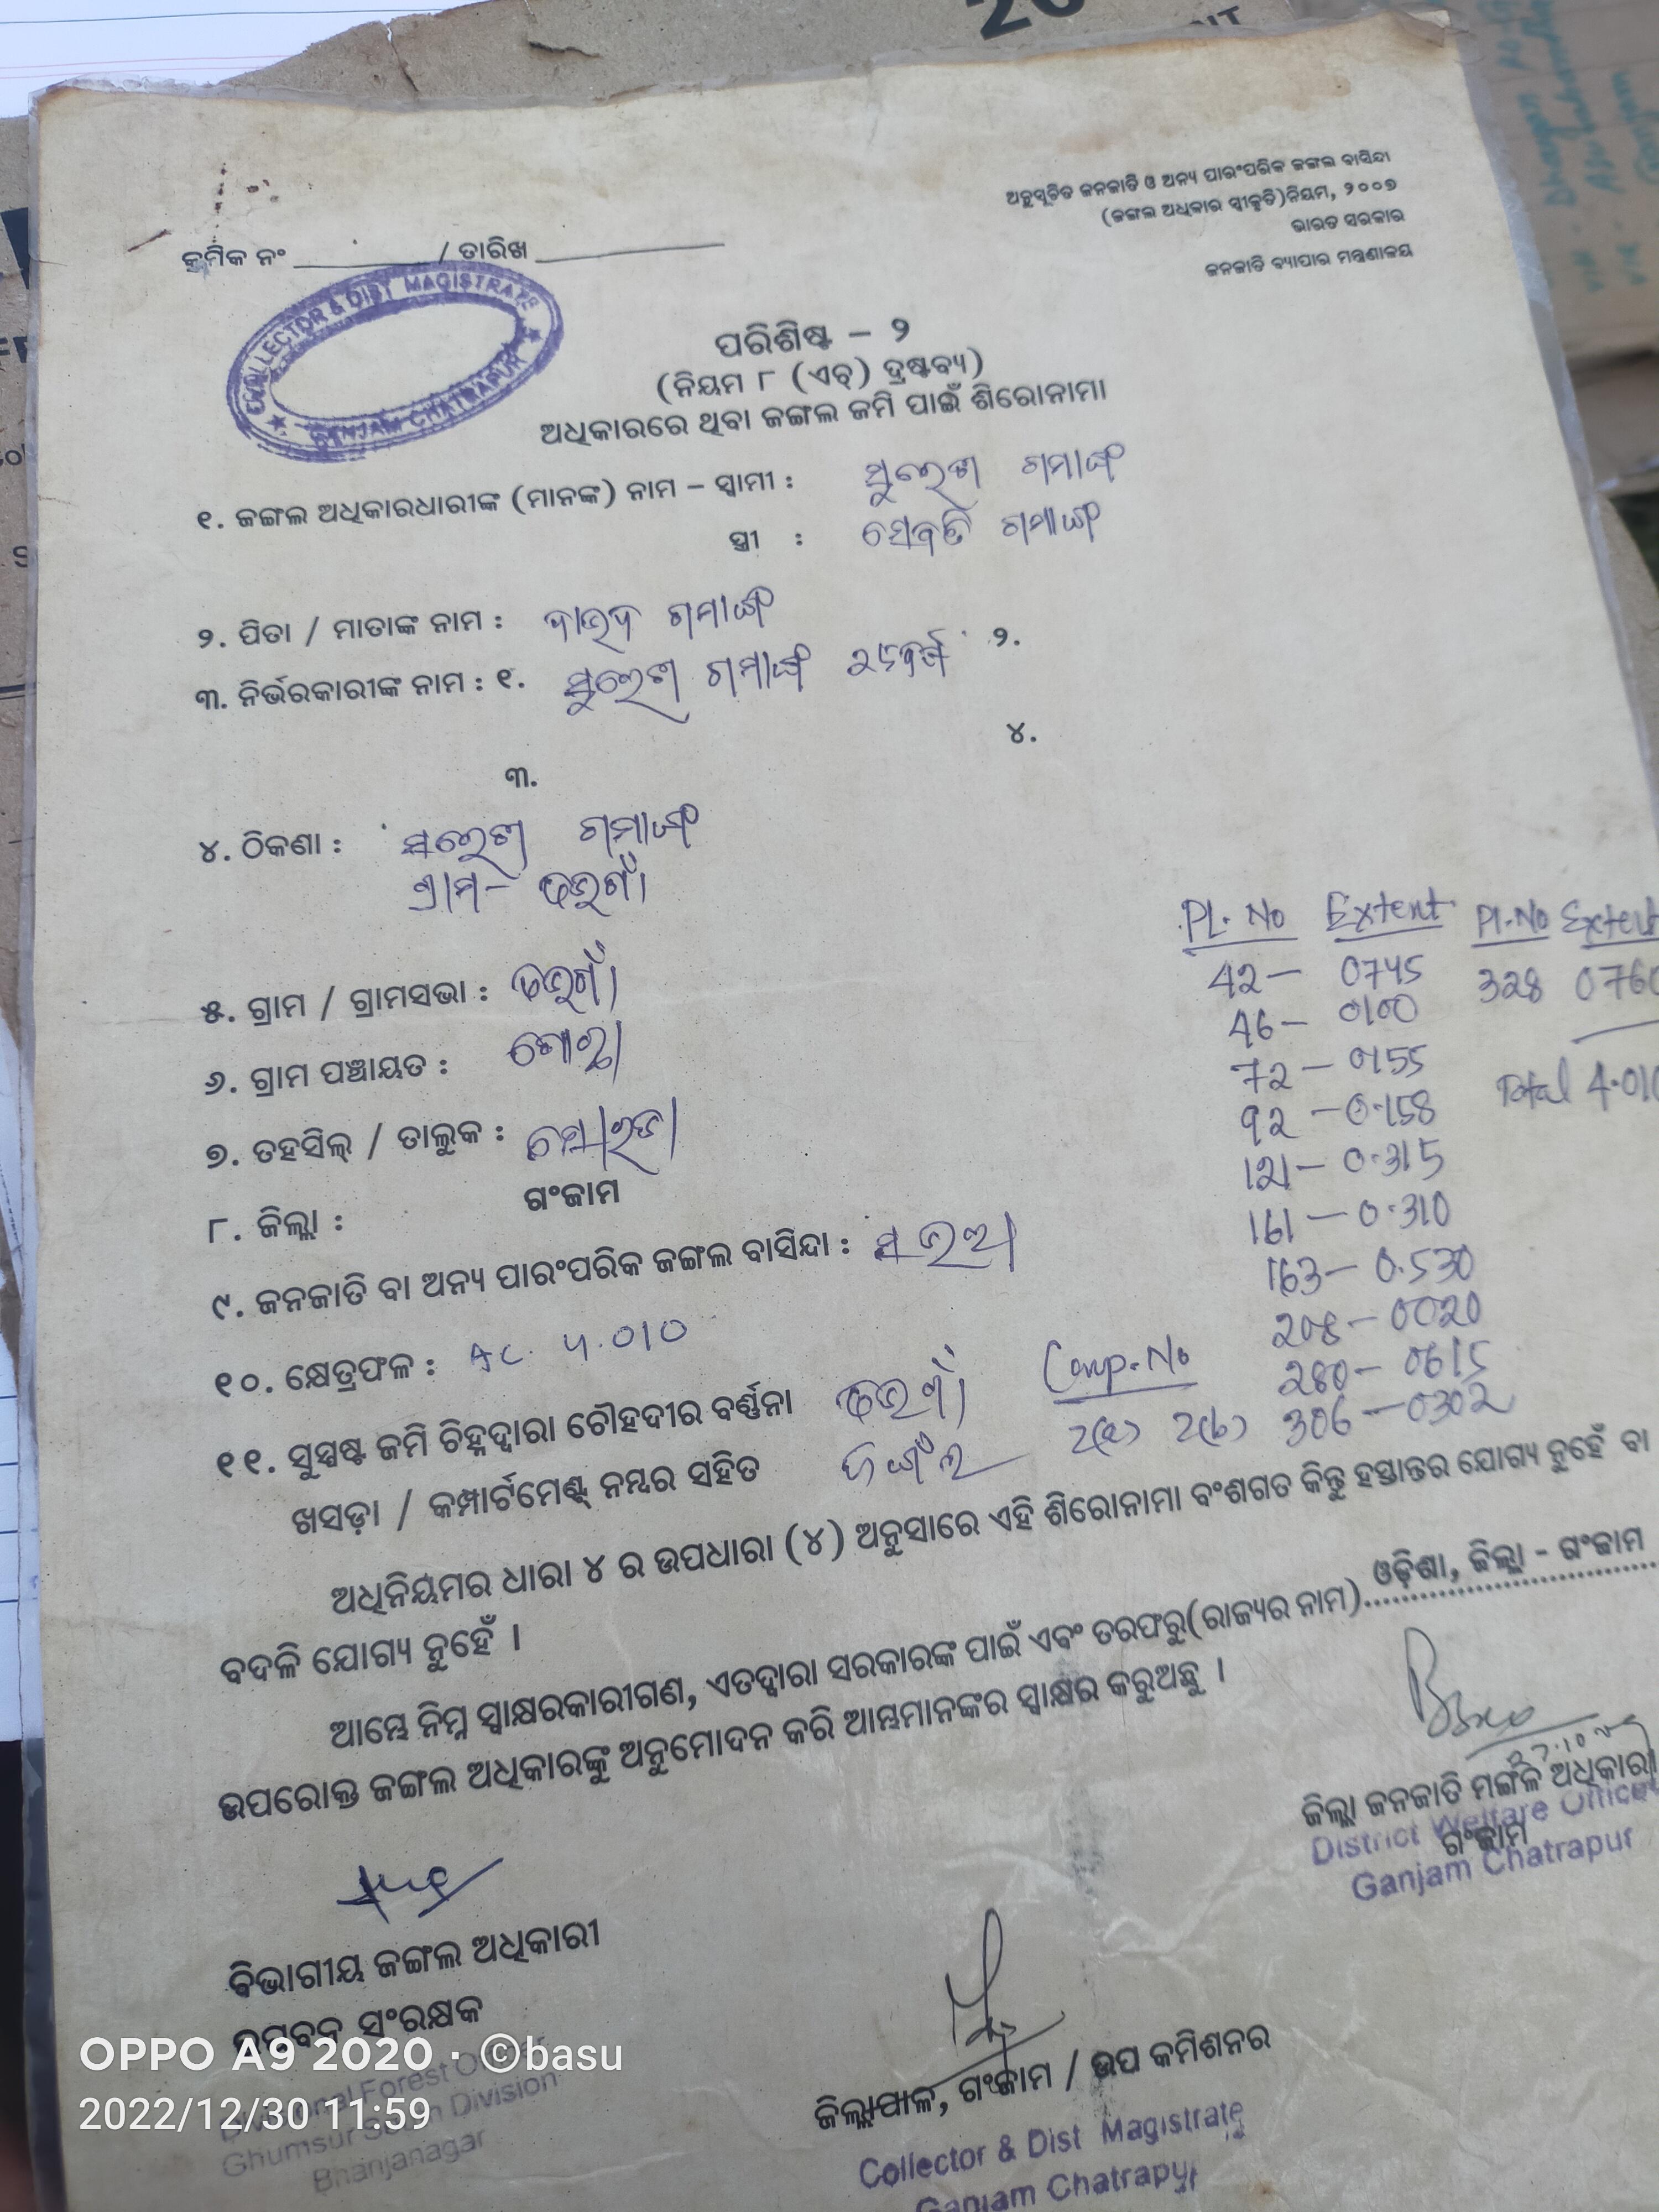 ଅନୁସୂଚିତ ଜନଜାତି ଓ ଅନ୍ୟ ପାରଂପରିକ ଜଙ୍ଗଲ ବାସିନ୍ଦା
(ଜଙ୍ଗଲ ଅଧିକାର ସ୍ୱୀକୃତି)ନିୟମ, ୨୦୦୭
ଭାରତ ସରକାର
ଜନଜାତି ବ୍ୟାପାର ମନ୍ତ୍ରଣାଳୟ
କ୍ରମିକ ନଂ / ତାରିଖ
COLLECTOR & DIST MAGISTRATE
GANJAM CHATRAPUR
ପରିଶିଷ୍ଟ – ୨
(ନିୟମ ୮ (ଏଚ୍) ଦ୍ରଷ୍ଟବ୍ୟ)
ଅଧିକାରରେ ଥିବା ଜଙ୍ଗଲ ଜମି ପାଇଁ ଶିରୋନାମା
୧. ଜଙ୍ଗଲ ଅଧିକାରଧାରୀଙ୍କ (ମାନଙ୍କ) ନାମ – ସ୍ୱାମୀ : ସୁରେଶ ଗମାଙ୍ଗ
ସ୍ତ୍ରୀ : ସେବତି ଗମାଙ୍ଗ
୨. ପିତା / ମାତାଙ୍କ ନାମ : ଦାଉଦ ଗମାଙ୍ଗ
୩. ନିର୍ଭରକାରୀଙ୍କ ନାମ : ୧. ସୁରେଶ ଗମାଙ୍ଗ ୨.
୩. ୪.
୪. ଠିକଣା : ସୁରେଶ ଗମାଙ୍ଗ
ଗ୍ରାମ-
୫. ଗ୍ରାମ / ଗ୍ରାମସଭା :
୬. ଗ୍ରାମ ପଞ୍ଚାୟତ :
୭. ତହସିଲ୍ / ତାଲୁକ : ସୋରଡା
୮. ଜିଲ୍ଲା : ଗଂଜାମ
୯. ଜନଜାତି ବା ଅନ୍ୟ ପାରଂପରିକ ଜଙ୍ଗଲ ବାସିନ୍ଦା : ସଉରା
୧୦. କ୍ଷେତ୍ରଫଳ : Ac. 4.010
Pl. No Extent Pl. No Extent
42 – 0745 328 0760
46 – 0100
72 – 0155
92 – 0.158 Total 4.010
121 – 0.315
161 – 0.310
163 – 0.530
208 – 0020
280 – 0615
306 – 0302
୧୧. ସୁସ୍ପଷ୍ଟ ଜମି ଚିହ୍ନଦ୍ୱାରା ଚୌହଦୀର ବର୍ଣ୍ଣନା Comp. No
ଖସଡ଼ା / କମ୍ପାର୍ଟମେଣ୍ଟ୍ ନମ୍ବର ସହିତ ଜଙ୍ଗଲ 2(a) 2(b)
ଅଧିନିୟମର ଧାରା ୪ ର ଉପଧାରା (୪) ଅନୁସାରେ ଏହି ଶିରୋନାମା ବଂଶଗତ କିନ୍ତୁ ହସ୍ତାନ୍ତର ଯୋଗ୍ୟ ନୁହେଁ ବା
ବଦଳି ଯୋଗ୍ୟ ନୁହେଁ ।
ଆମ୍ଭେ ନିମ୍ନ ସ୍ୱାକ୍ଷରକାରୀଗଣ, ଏତଦ୍ୱାରା ସରକାରଙ୍କ ପାଇଁ ଏବଂ ତରଫରୁ(ରାଜ୍ୟର ନାମ) ଓଡ଼ିଶା, ଜିଲ୍ଲା - ଗଂଜାମ
ଉପରୋକ୍ତ ଜଙ୍ଗଲ ଅଧିକାରଙ୍କୁ ଅନୁମୋଦନ କରି ଆମ୍ଭମାନଙ୍କର ସ୍ୱାକ୍ଷର କରୁଅଛୁ ।
ଜିଲ୍ଲା ଜନଜାତି ମଙ୍ଗଳ ଅଧିକାରୀ
ଗଂଜାମ
District Welfare Officer
Ganjam Chatrapur
ବିଭାଗୀୟ ଜଙ୍ଗଲ ଅଧିକାରୀ
ଉପବନ ସଂରକ୍ଷକ
Divisional Forest Officer
Ghumsur South Division
Bhanjanagar
ଜିଲ୍ଲାପାଳ, ଗଂଜାମ / ଉପ କମିଶନର
Collector & Dist Magistrate
Ganjam Chatrapur
OPPO A9 2020 · ©basu
2022/12/30 11:59